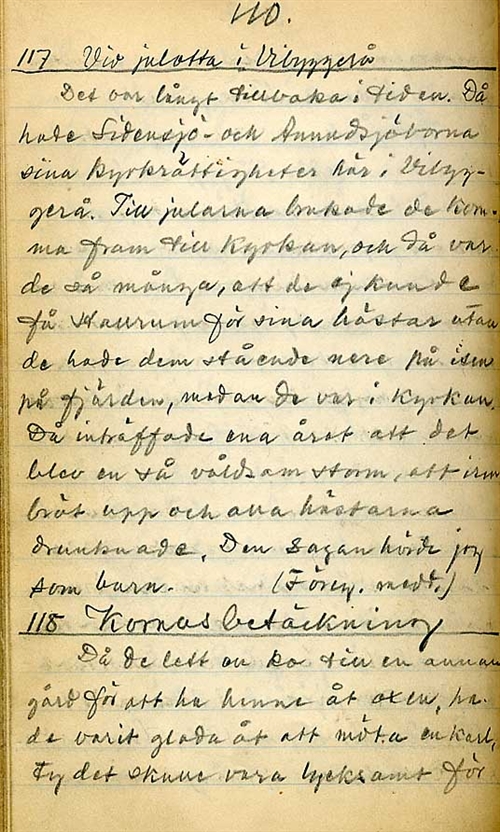 110.
117 Vid julotta i Vibyggerå
Det var långt tillbaka i tiden. Då
hade Sidensjö- och Anundsjöborna
sina kyrkrättigheter här i Vibyg-
gerå. Till jularna brukade de kom-
ma fram till kyrkan, och då var
de så många, att de ej kunde
få stallrum för sina hästar utan
de hade dem stående nere på isen
på fjärden, medan de var i kyrkan.
Då inträffade ena året att det
blev en så våldsam storm, att isen
bröt upp och alla hästarna
drunknade. Den sagan hörde jag
som barn. (Föreg. medd.)
118 Kornas betäckning
Då de lett en ko till en annan
gård för att ha henne åt oxen, ha-
de varit glada åt att möta en karl,
ty det skulle vara lycksamt för